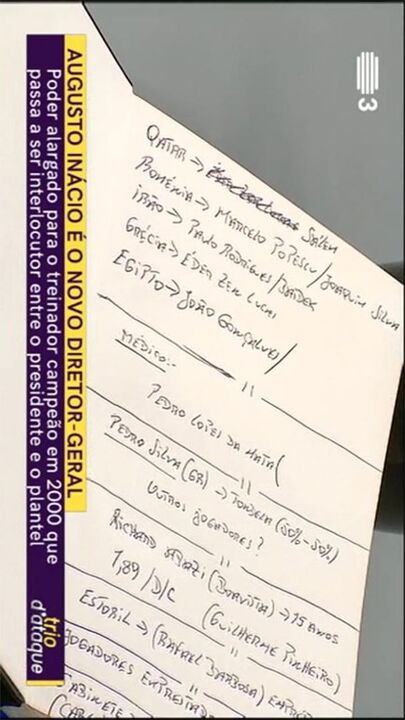 3
QATAR → SALEM
ROMÉNIA → MARCELO POPESCU / JOAQUIM SILVA
IRÃO → PAULO RODRIGUES /
GRÉCIA → EDER ZEN LUCHI
EGIPTO → JOÃO GONÇALVES /
MÉDICO:-
PEDRO LOPES DA MATA (
PEDRO SILVA (GR) → TONDELA (50% - 50%)
OUTROS JOGADORES?
RICHARD (BOAVISTA) → 15 ANOS
1,89 / D/C (GUILHERME PINHEIRO)
ESTORIL → (RAFAEL BARBOSA)
JOGADORES
GABINETE →
AUGUSTO INÁCIO É O NOVO DIRETOR-GERAL
Poder alargado para o treinador campeão em 2000 que
passa a ser interlocutor entre o presidente e o plantel
trio
d'ataque